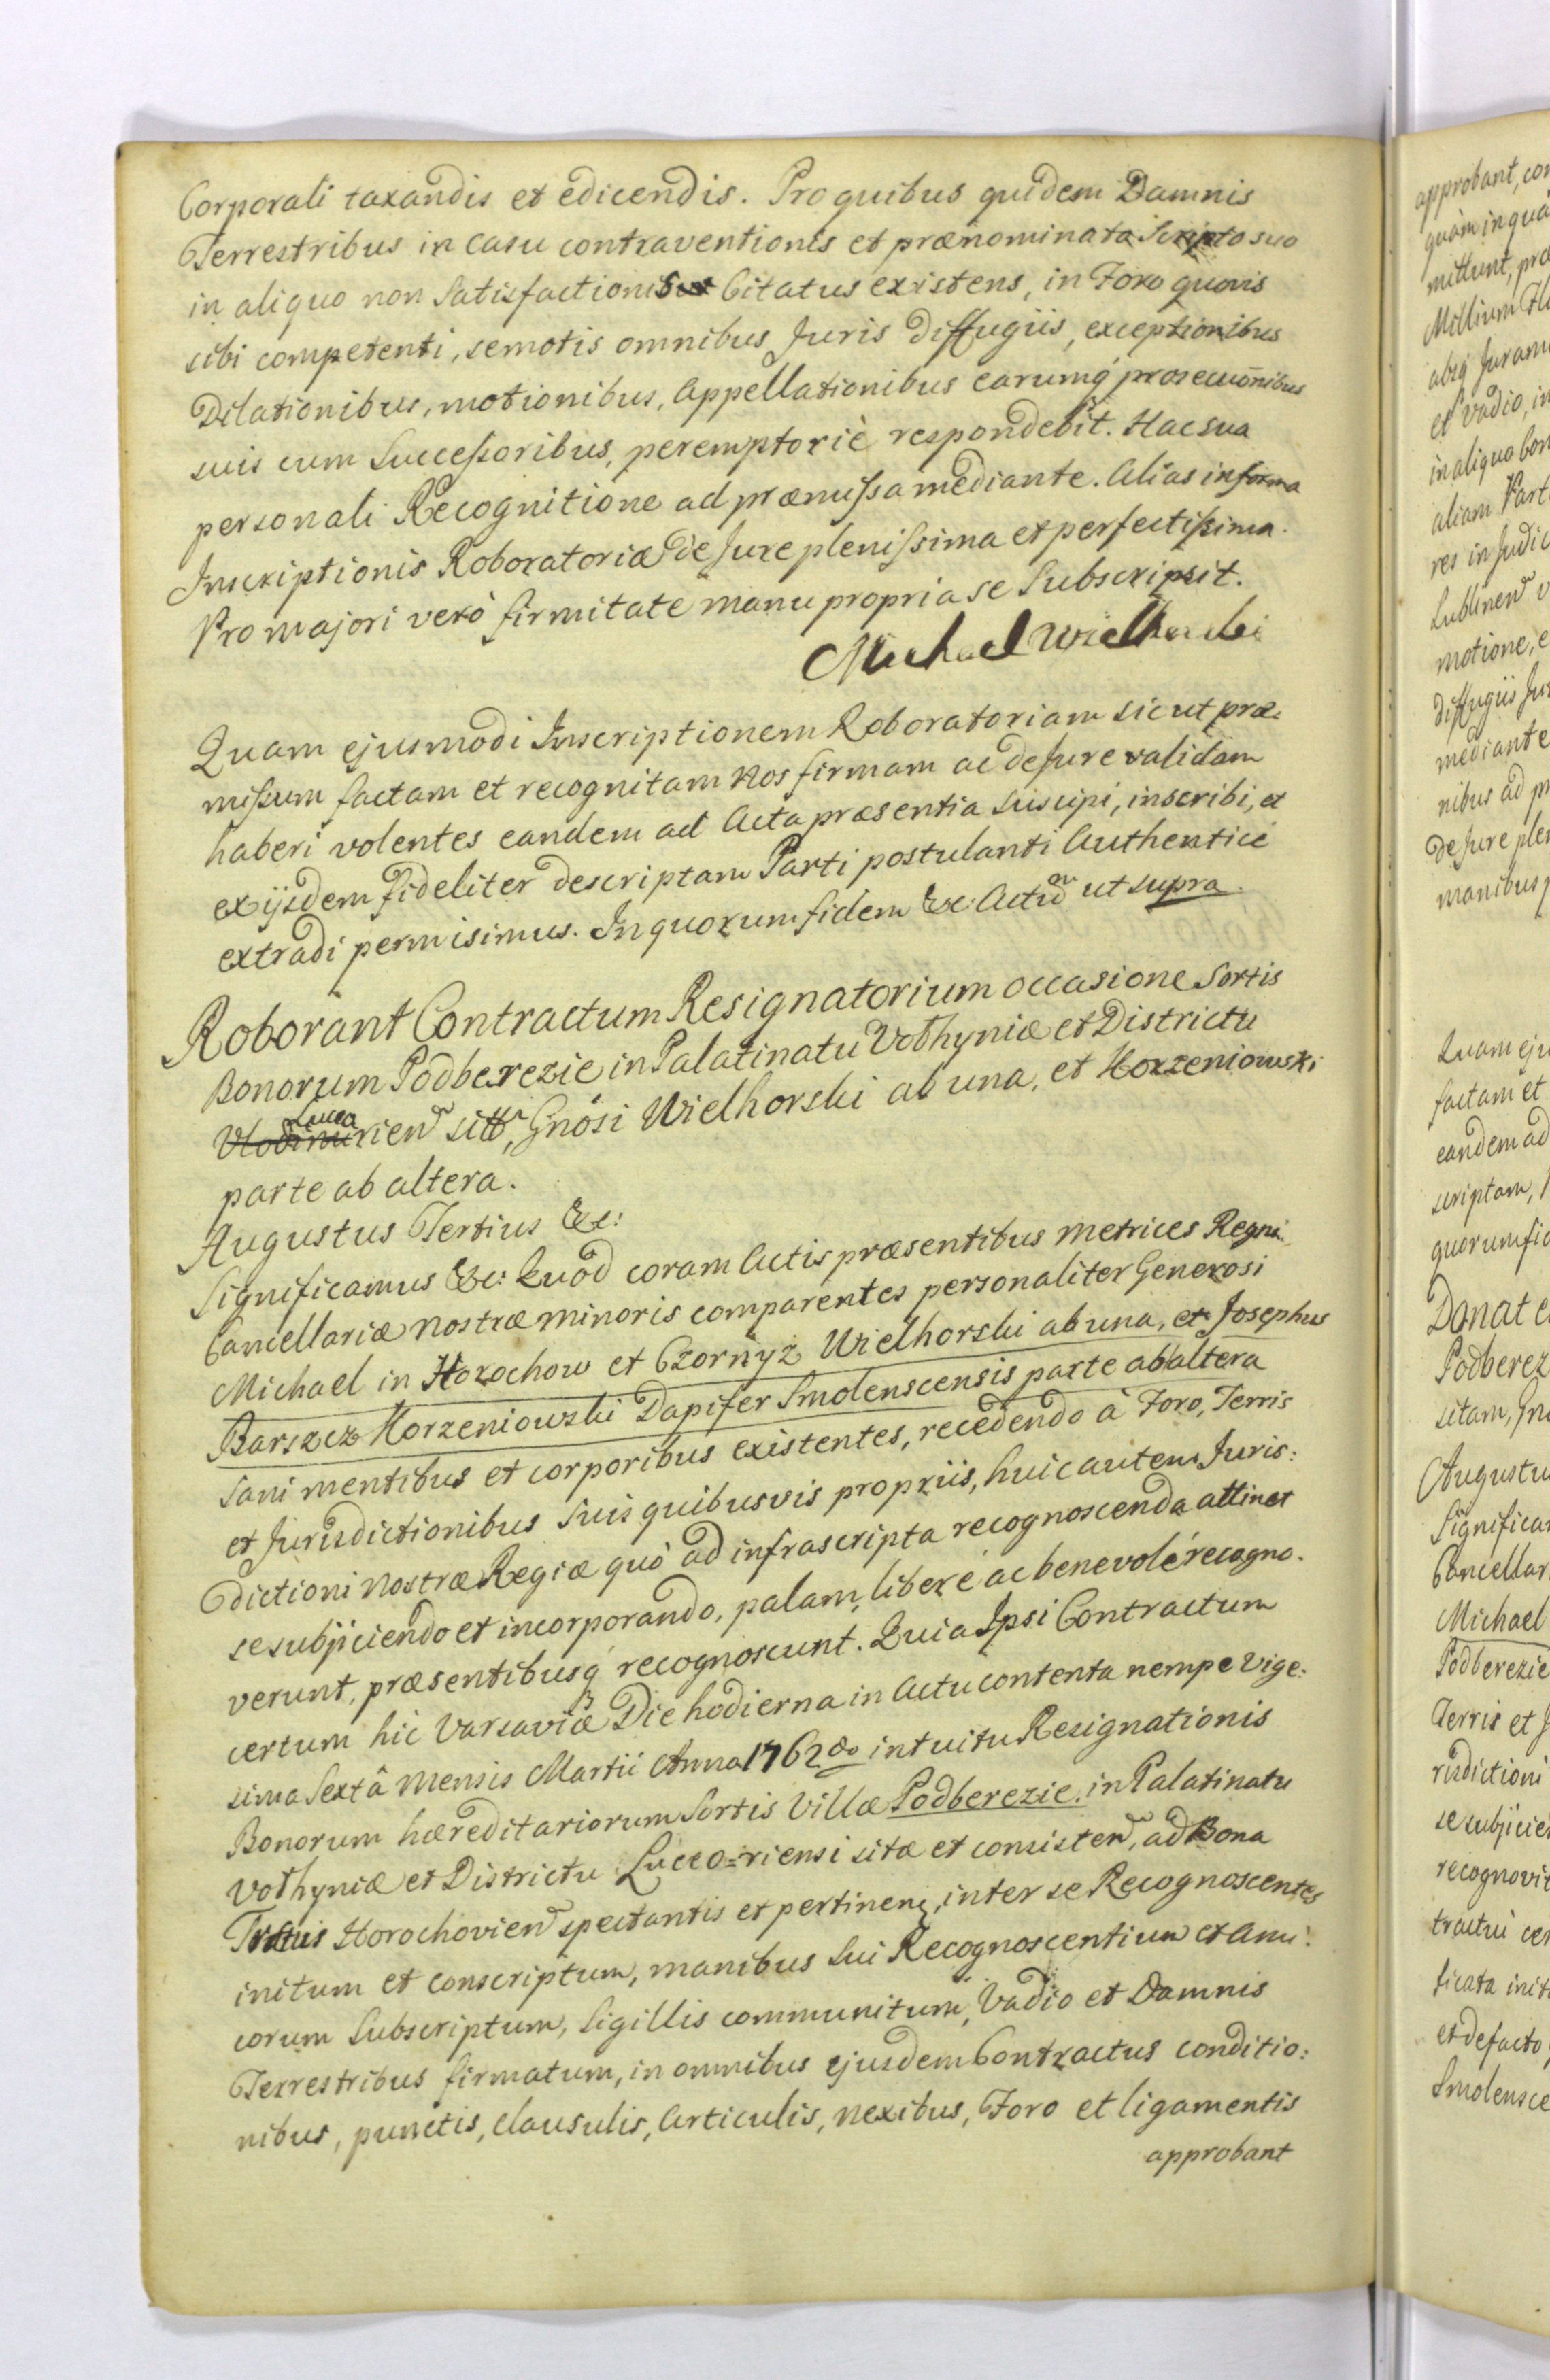 Corporali taxandis et edicendis. Pro quibus quidem Damnis
Terrestribus in casu contraventionis et prænominata Scripto suo
in aliquo non Satisfactionis Citatus existens, in Foro quovis
sibi competenti, semotis omnibus Juris Diffugiis, exceptionibus
Dilationibus, motionibus, Appellationibus earumq́ prosecuõnibus
suis cum Successoribus, peremptoriè respondebit. Hac sua
personali Recognitione ad præmissa mediante. Alias in forma
Inscriptionis Roboratoriæ de Jure plenissima et perfectissima.
Pro majori verò firmitate manu propria se Subscripsit.
Michael Wielhorski
Quam ejusmodi Inscriptionem Roboratoriam sicut præ:
missum factam et recognitam Nos firmam ac de Jure validam
haberi volentes eandem ad Acta præsentia suscipi, inscribi, et
ex ijsdem fideliter descriptam Parti postulanti Authenticè
extradi permisimus. In quorum fidem &c: Actũm ut supra.
Roborant Contractum Resignatorium occasione Sortis
Bonorum Podberezie in Palatinatu Volhyniæ et Districtu
Lucea
Vlodimirien sitt, Gnosi Wielhorski ab una, et Korzeniowski
parte ab altera.
Augustus Tertius &c:
Significamus &c: Quod coram Actis præsentibus Metrices Regni
Cancellariæ Nostræ Minoris comparentes personaliter Generosi
Michael in Horochow et Czornyż Wielhorski ab una, et Josephus
Barszcz Korzeniowski Dapifer Smolenscensis parte ab altera
sani mentibus et corporibus existentes, recedendo à Foro, Terris
et Jurisdictionibus suis quibusvis propriis, huic autem Juris:
dictioni Nostræ Regiæ quò ad infrascripta recognoscenda attinet
se subjiciendo et incorporando, palam, liberè ac benevolè recogno.
verunt, præsentibusq́ recognoscunt. Quia Ipsi Contractum
certum hic Varsaviæ Die hodierna in Actu contenta nempe Vige:
sima Sextâ Mensis Martii Anno 1762do intuitu Resignationis
Bonorum hæreditariorum Sortis Villæ Podberezie in Palatinatu
Volhyniæ et Districtu Luceo=riensi sitæ et consisten, ad Bona
Tractus Horochovien spectantis et pertinen, inter se Recognoscentes
initum et conscriptum, manibus sui Recognoscentium et Ami:
corum Subscriptum, Sigillis communitum, Vadio et Damnis
Terrestribus firmatum, in omnibus ejusdem Contractus conditio:
nibus, punctis, Clausulis, Articulis, nexibus, Foro et ligamentis
approbant
approbant, con
quàm in qua
mittunt, præ
Millium Fl
absq́ Juram
et Vadio, in
in aliquo bon
aliam Part
res in Judic
Lublinen v
motione, e
diffugiis Jur
mediante
nibus ad pr
de Jure plen
manibus p
Quam eju
factam et
eandem ad
scriptam,
quorum fid
Donat e
Podberez
sitam, Gn
Augustu
Significa
Cancellar
Michael
Podberezie
Terris et J
risdictioni
se subjicie
recognovit
tractui cer
ficata init
et defacto
Smolensce